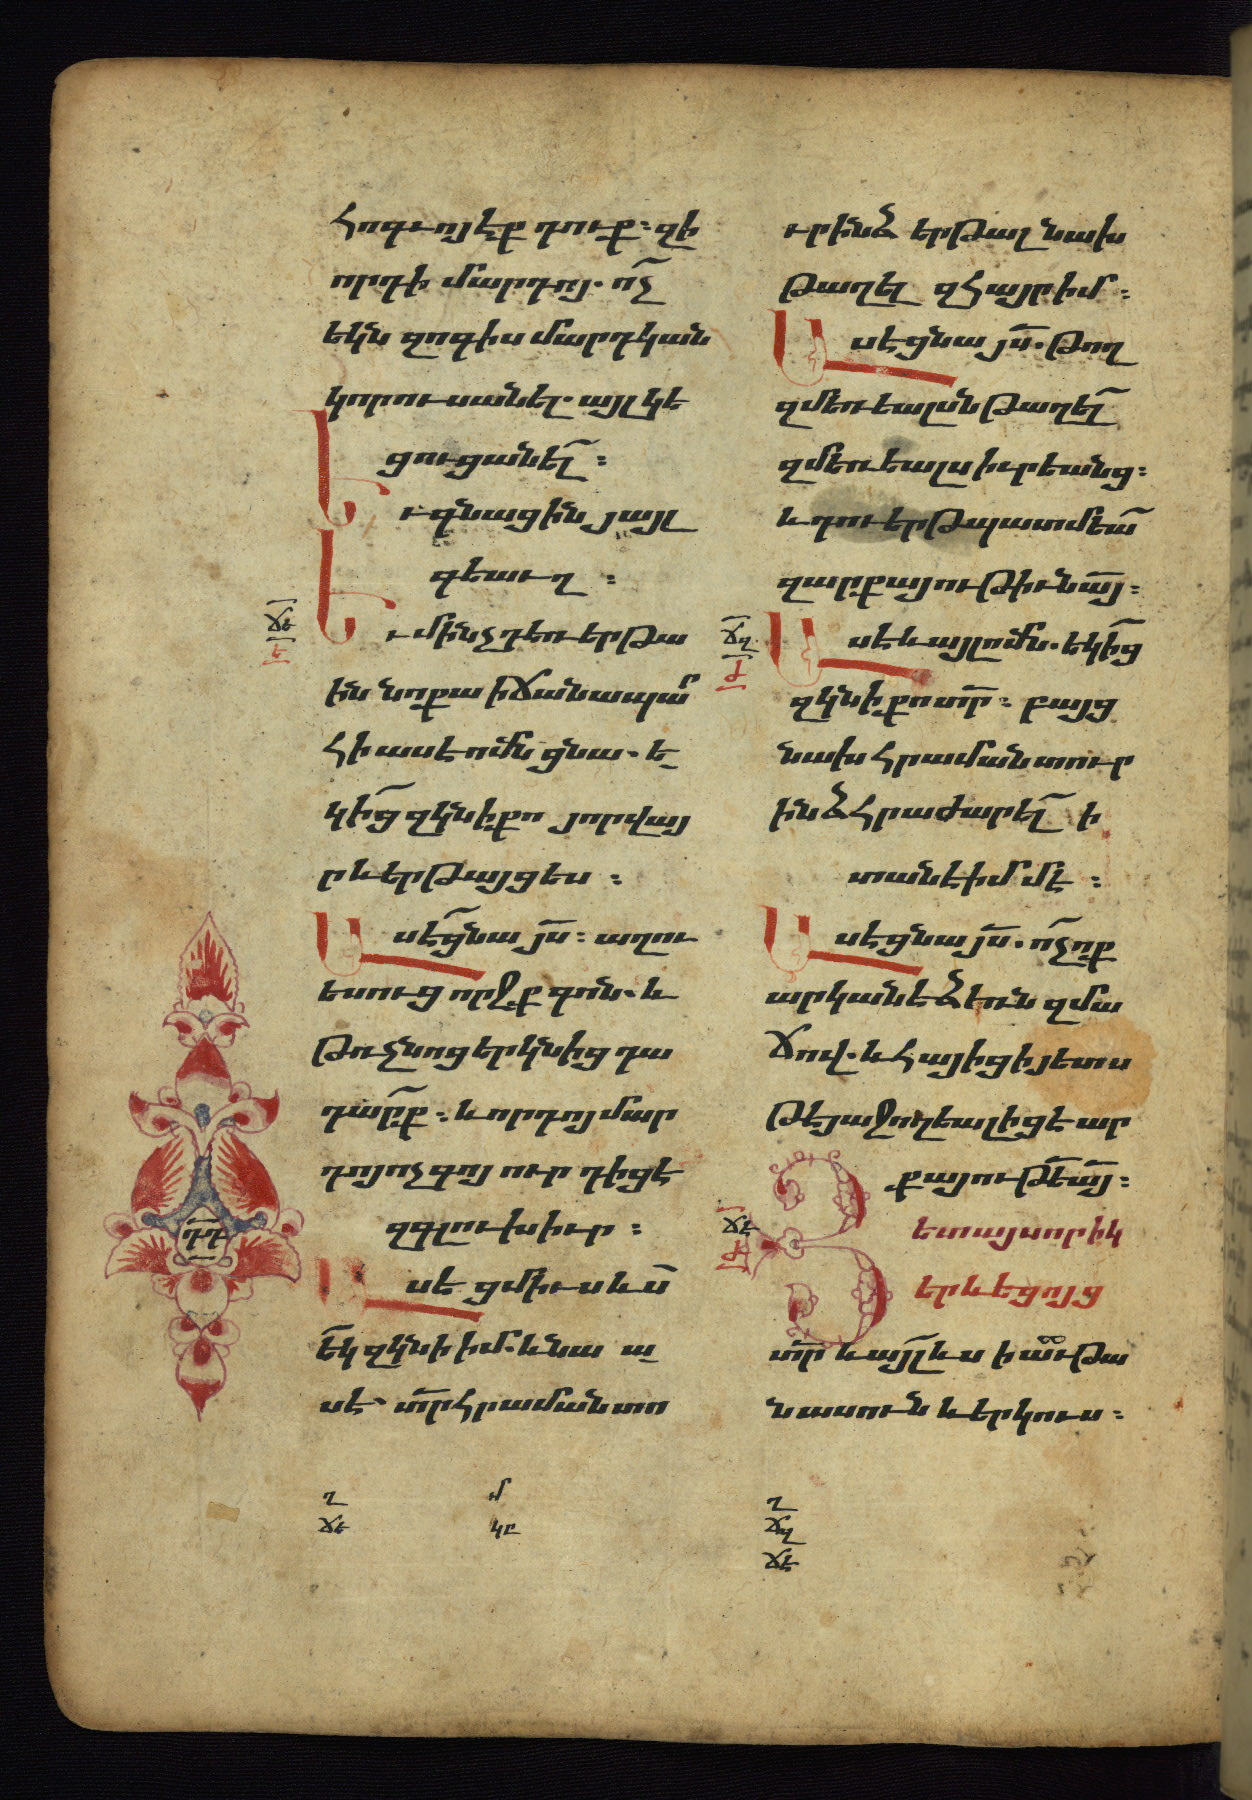 հոգւոյ էք դուք։ զի
որդի մարդոյ. ո՜չ
եկն զոգիս մարդկան
կորուսանել. այլ կե
ցուցանել։
Եւ գնացին յայլ
գեաւղ։
Եւ մինչդեռ երթա
ին նոքա ի ճանապար
հի ասէ ոմն ցնա. ե
կից զկնի քո յորվայ
ր և երթայցես։
Ասէ ցնա յս։ աղու
եսուց որջք գոն. և
թռչնոց երկնից դա
դարք։ և որդոյ մար
դոյ ոչ գոյ ուր դիցէ
զգլուխ իւր։
Ասէ ցմիւս ևս
ե՛կ զկնի իմ. և նա ա
սէ. տր հրաման տո
ւր ինձ երթալ նախ
թաղել զհայր իմ։
Ասէ ցնա յս. թող
զմեռեալսն թաղել
զմեռեալս իւրեանց։
և դու երթ պատմեա
զարքայութիւն այ։
Ասէ և այլ ոմն. եկից
զկնի քո տր։ բայց
նախ հրաման տուր
ինձ հրաժարել ի
տանէ իմմէ։
Ասէ ցնա յս. ո՜չ ոք
արկանէ ձեռն զմա
ճով. և հայիցի յետս
թէ յաջողեալ իցէ ար
քայութե այ։
Յետ այսորիկ
երևեցոյց
տր և այլ ևս իւթա
նասուն և երկուս։
ճե
ե
դդ
ճզ
ժ
ճէ
ժ
ղ
ճե
մ
կը
ղ
ճզ
ճէ